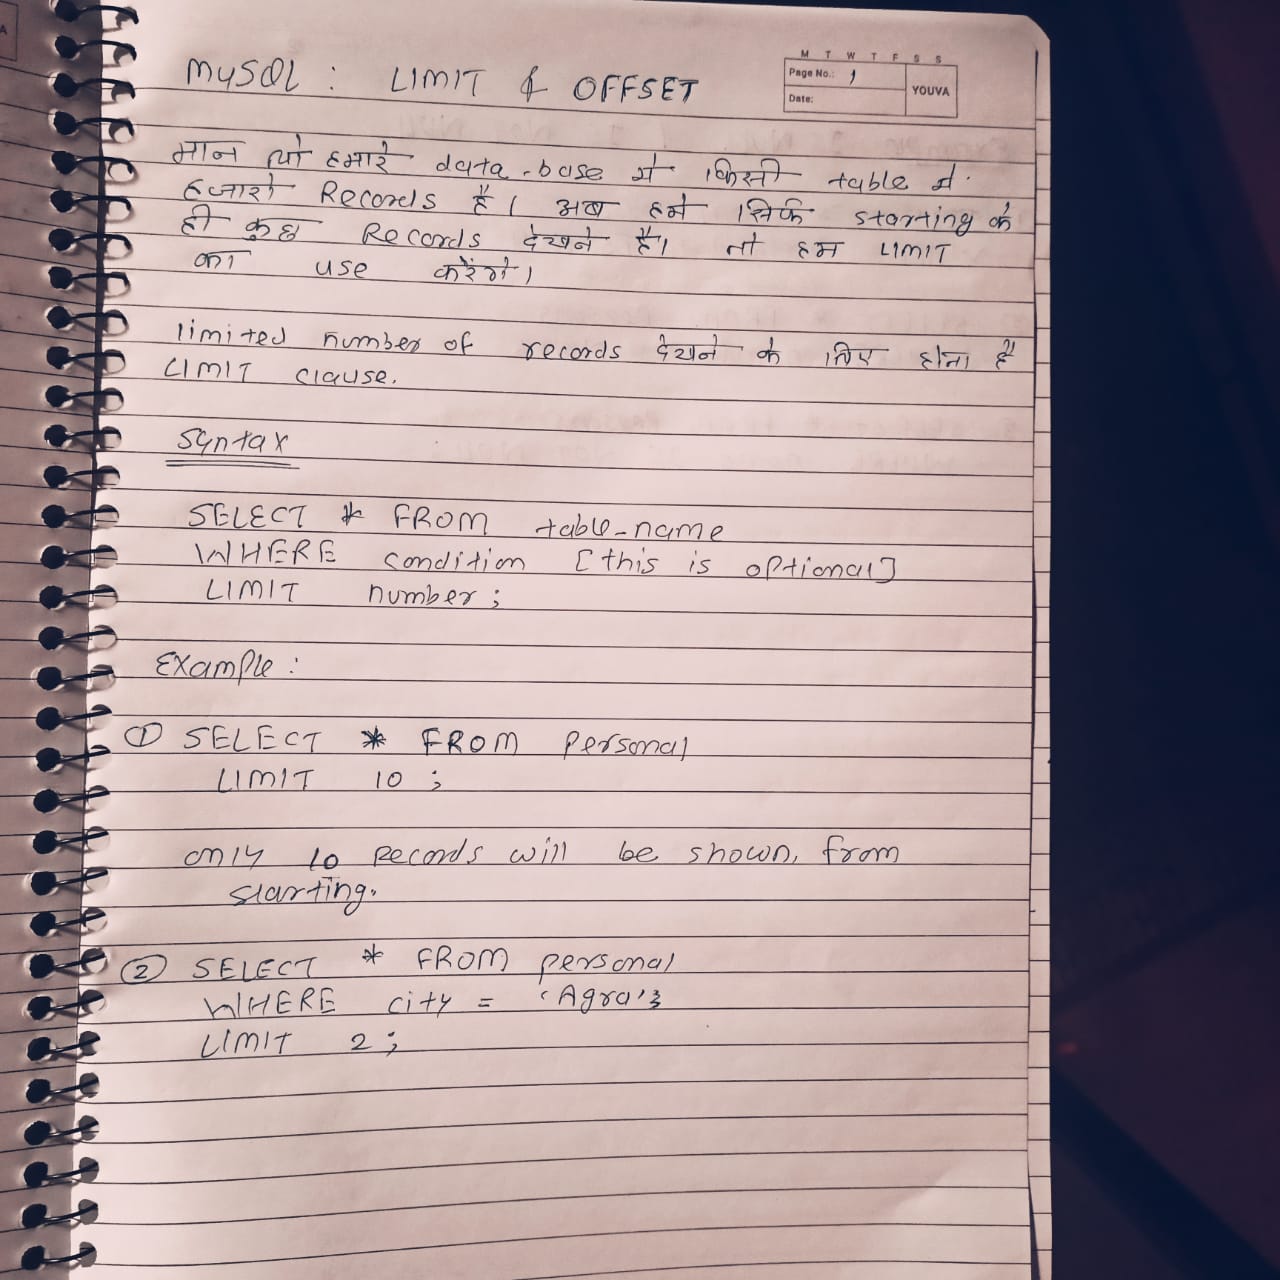 MySQL : LIMIT & OFFSET
M T W T F S S
Page No.: 1
Date:
YOUVA
मान लो हमारे data-base मे किसी table मे
हजारो Records है। अब हमे सिर्फ starting के
ही कुछ Records देखने है। तो हम LIMIT
का use करेंगे।
limited number of records देखने के लिए होता है
LIMIT clause.
Syntax
SELECT * FROM table_name
WHERE condition [this is optional]
LIMIT number;
Example :
① SELECT * FROM Personal
LIMIT 10 ;
only 10 Records will be shown, from
starting.
② SELECT * FROM personal
WHERE city = 'Agra'
LIMIT 2 ;